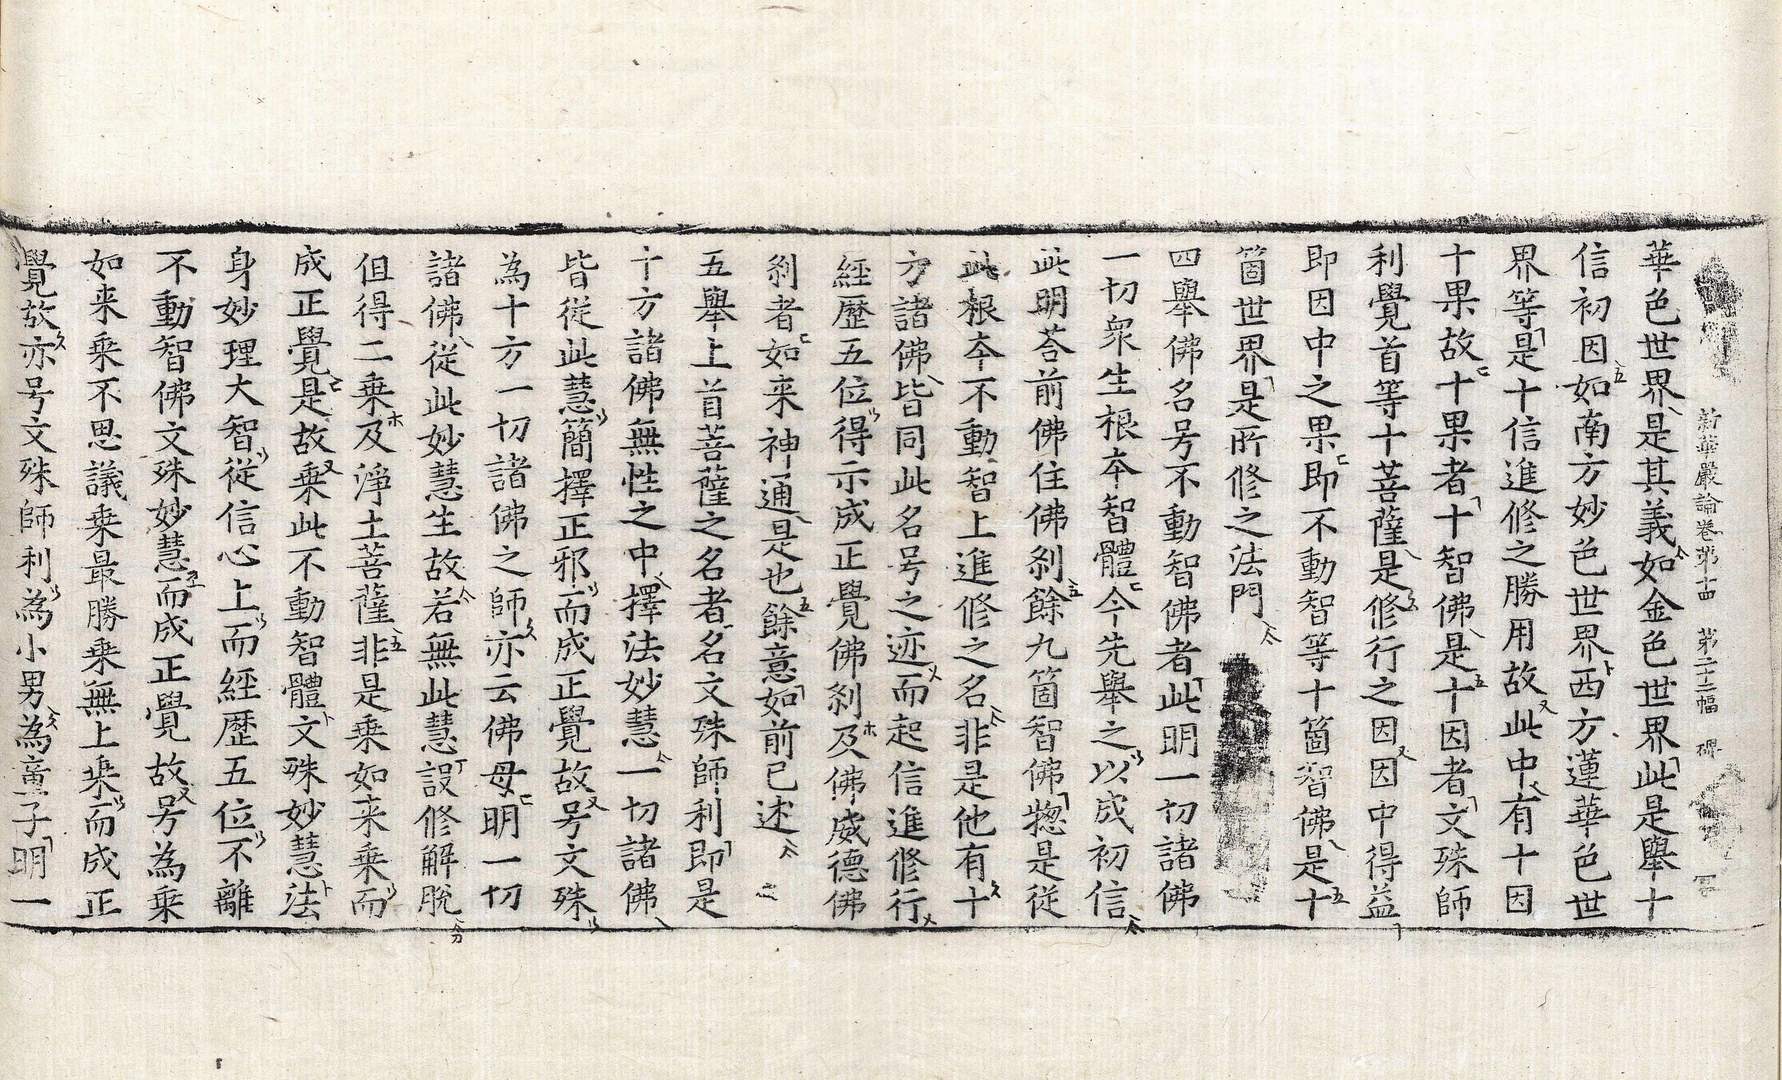 新華嚴論卷第十四　第二十二幅
華色世界是其義如金色世界此是舉十
信初因如南方妙色世界西方蓮華色世
界等是十信進修之勝用故此中有十因
十果故十果者十智佛是十因者文殊師
利覺首等十菩薩是修行之因因中得益
即因中之果即不動智等十箇智佛是十
箇世界是所修之法門
四舉佛名号不動智佛者此明一切諸佛
一切衆生根本智體今先舉之以成初信
此明荅前佛住佛刹餘九箇智佛揔是從
此根夲不動智上進修之名非是他有十
方諸佛皆同此名号之迹而起信進修行
經歷五位得示成正覺佛刹及佛威德佛
刹者如来神通是也餘意如前已述
五舉上首菩薩之名者名文殊師利即是
十方諸佛無性之中擇法妙慧一切諸佛
皆從此慧簡擇正邪而成正覺故号文殊
為十方一切諸佛之師亦云佛母明一切
諸佛從此妙慧生故若無此慧設修解脫
但得二乗及淨土菩薩非是乗如来乗而
成正覺是故乗此不動智體文殊妙慧法
身妙理大智從信心上而經歷五位不離
不動智佛文殊妙慧而成正覺故号為乗
如来乗不思議乗最勝乗無上乗而成正
覺故亦号文殊師利為小男為童子明一